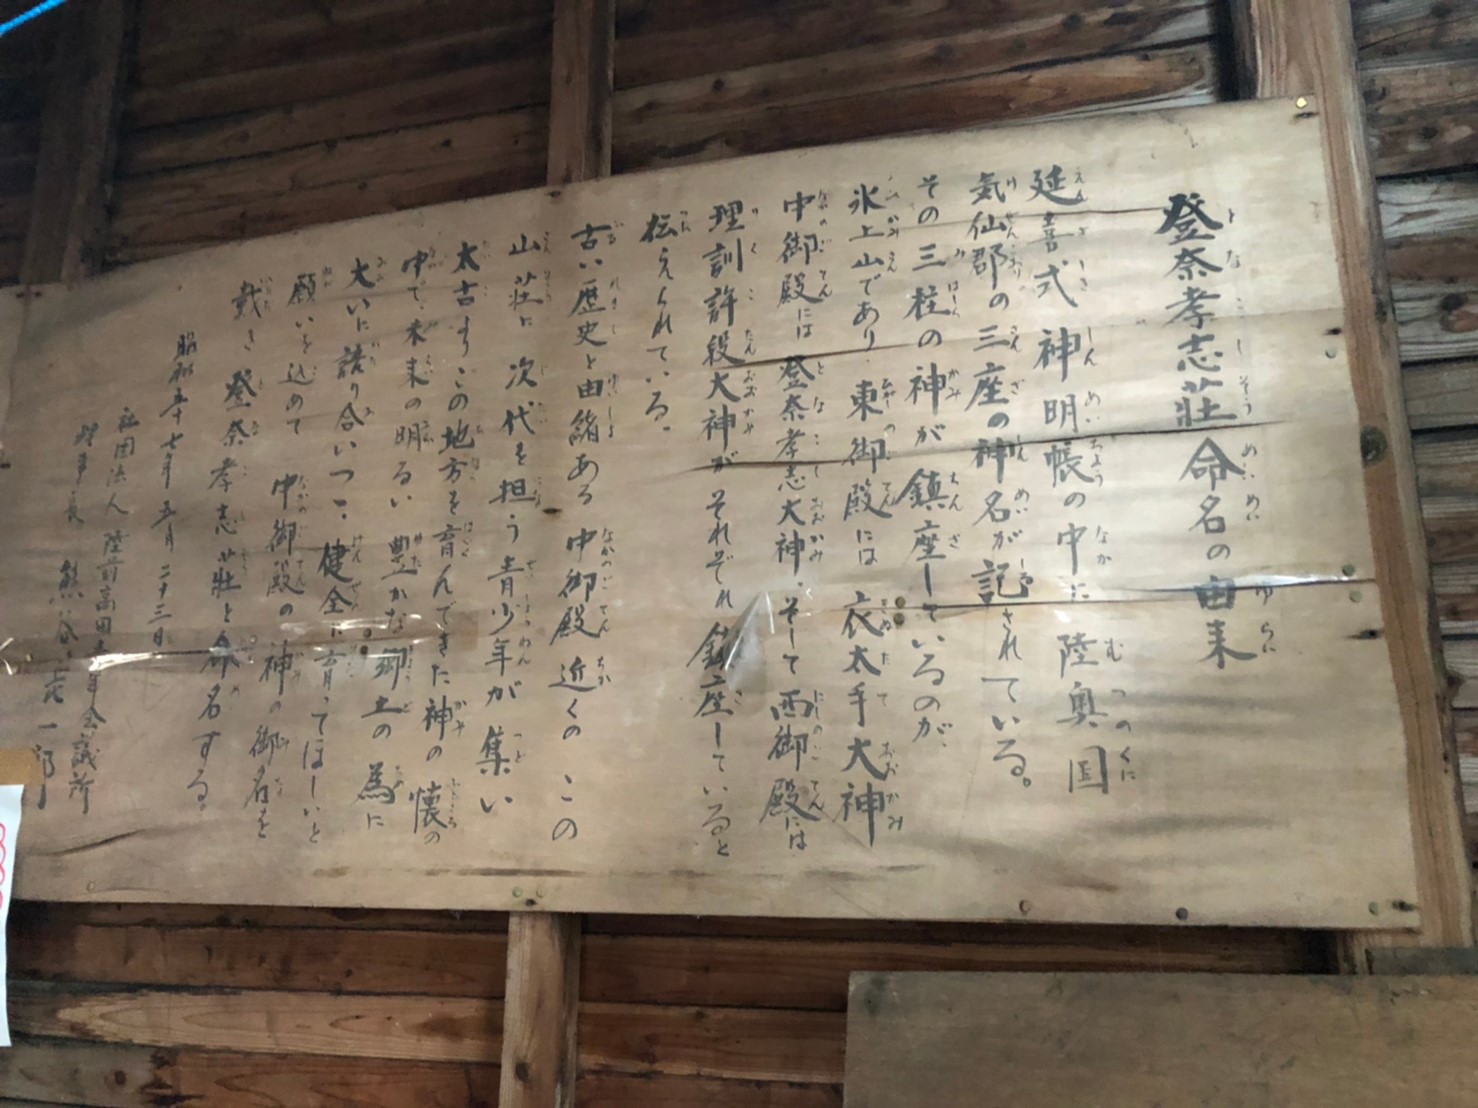 登奈孝志荘命名の由来
延喜式神明帳の中に陸奥国
気仙郡の三座の神名が記されている。
その三柱の神が鎮座しているのが、
氷上山であり、東御殿には衣太手大神
中御殿には登奈孝志大神、そして西御殿には
理訓許段大神がそれぞれ鎮座していると
伝えられている。
古い歴史と由緒ある中御殿近くのこの
山荘に次代を担う青少年が集い
太古よりこの地方を育んできた神の懐の
中で、未来の明るい豊かな郷土の為に
大いに語り合いつつ、健全に育ってほしいと
願いを込めて中御殿の神の御名を
戴き登奈孝志荘と命名する。
昭和五十七年五月二十三日
社団法人 陸前高田青年会議所
理事長 熊谷 一郎